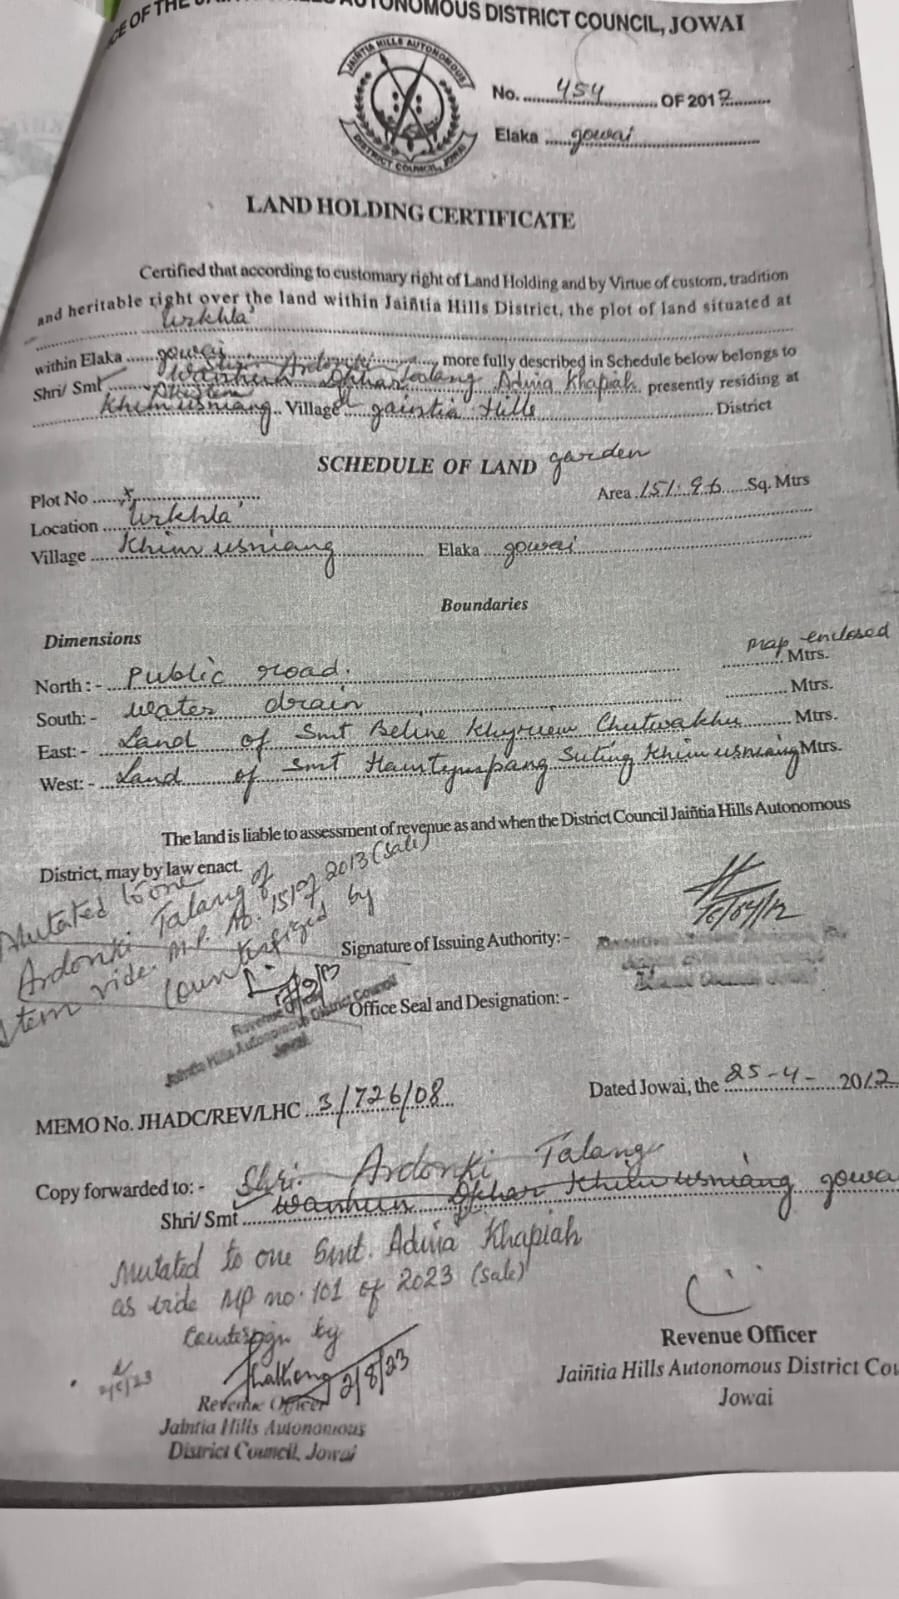 OF THE JAIÑTIA HILLS AUTONOMOUS DISTRICT COUNCIL, JOWAI
JAIÑTIA HILLS AUTONOMOUS
DISTRICT COUNCIL, JOWAI
No. 454 OF 2012
Elaka Jowai
LAND HOLDING CERTIFICATE
Certified that according to customary right of Land Holding and by Virtue of custom, tradition
and heritable right over the land within Jaiñtia Hills District, the plot of land situated at
Urkhla'
within Elaka Jowai more fully described in Schedule below belongs to
Shri/ Smt Wanhun Dkhar Ardonki Talang Aduia Khapiah presently residing at
Khimusniang Village Jaintia Hills District
SCHEDULE OF LAND garden
Plot No x Area 151.96 Sq. Mtrs
Location Urkhla'
Village Khimusniang Elaka Jowai
Boundaries
Dimensions map enclosed
North : - Public road. Mtrs.
South: - water drain Mtrs.
East: - Land of Smt Beline Khyriem Chutwakhu Mtrs.
West: - Land of Smt Suting Khimusniang Mtrs.
The land is liable to assessment of revenue as and when the District Council Jaiñtia Hills Autonomous
District, may by law enact.
Mutated to one
Ardonki Talang of
vide M.P. No. 15 of 2013 (Sale)
Countersigned by
Signature of Issuing Authority: -
Revenue Officer
Jaintia Hills Autonomous District Council
Jowai
Office Seal and Designation: -
Dated Jowai, the 25-4-2012
MEMO No. JHADC/REV/LHC 3/726/08
Copy forwarded to: - Shri. Ardonki Talang
Shri/ Smt Wanhun Dkhar Khimusniang Jowai
Mutated to one Smt. Aduia Khapiah
as vide MP no. 101 of 2023 (Sale)
Countersign by
2/8/23
Revenue Officer
Jaintia Hills Autonomous
District Council, Jowai
Revenue Officer
Jaiñtia Hills Autonomous District Cou
Jowai